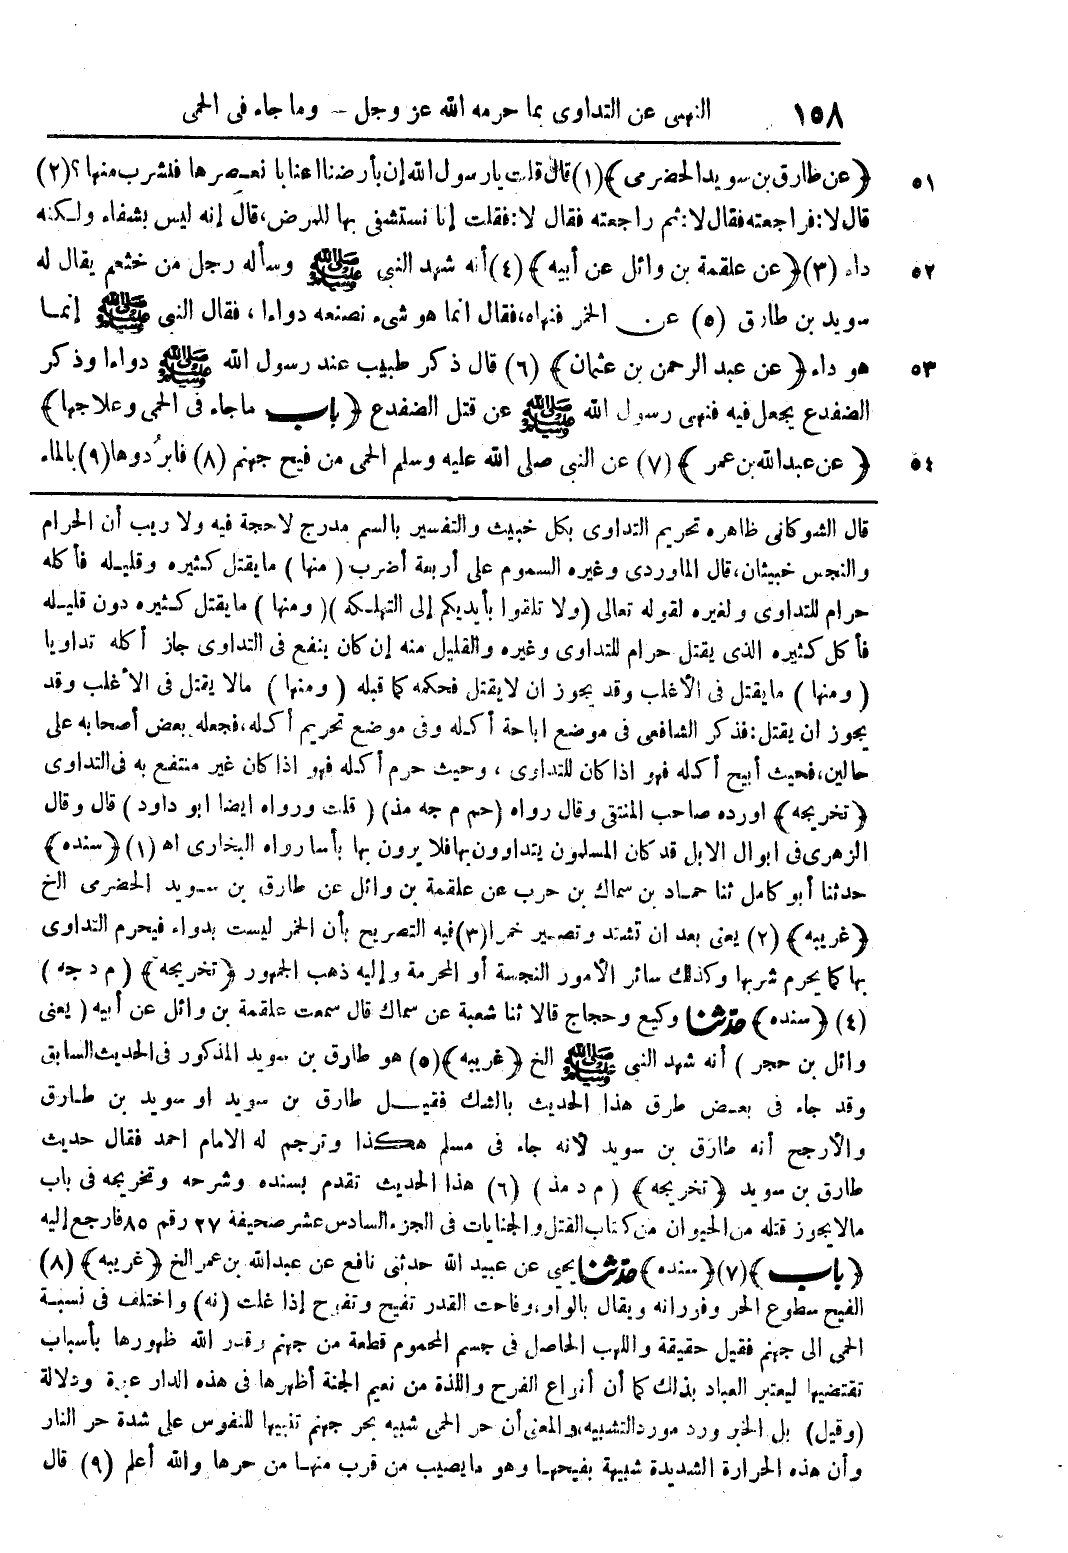 ١٥٨ النهى عن التداوى بما حرمه الله عز وجل – وما جاء فى الحمى
٥١ ﴿ عن طارق بن سويد الحضرمى ﴾(١) قال قلت يا رسول الله إن بأرضنا اعنابا نعصرها فنشرب منها؟(٢)
قال لا: فراجعته فقال لا: ثم راجعته فقال لا: فقلت إنا نستشفى بها للمرض، قال إنه ليس بشفاء ولكنه
٥٢ داء (٣) ﴿ عن علقمة بن وائل عن أبيه ﴾ (٤) أنه شهد النبى ﷺ وسأله رجل من خثعم يقال له
سويد بن طارق (٥) عن الخمر فنهاه، فقال انما هو شىء نصنعه دواءا ، فقال النبى ﷺ إنما
٥٣ هو داء ﴿ عن عبد الرحمن بن عثمان ﴾ (٦) قال ذكر طبيب عند رسول الله ﷺ دواءا وذكر
الضفدع يجعل فيه فنهى رسول الله ﷺ عن قتل الضفدع ﴿ باب ما جاء فى الحمى وعلاجها ﴾
٥٤ ﴿ عن عبد الله بن عمر ﴾ (٧) عن النبى صلى الله عليه وسلم الحمى من فيح جهنم (٨) فابرُدوها (٩) بالماء
قال الشوكانى ظاهره تحريم التداوى بكل خبيث والتفسير بالسم مدرج لا حجة فيه ولا ريب أن الحرام
والنجس خبيثان، قال الماوردى وغيره السموم على أربعة أضرب ( منها ) ما يقتل كثيره وقليله فأكله
حرام للتداوى ولغيره لقوله تعالى (ولا تلقوا بأيديكم إلى التهلكة )( ومنها ) ما يقتل كثيره دون قليله
فأكل كثيره الذى يقتل حرام للتداوى وغيره والقليل منه إن كان ينفع فى التداوى جاز أكله تداويا
( ومنها ) ما يقتل فى الأغلب وقد يجوز ان لا يقتل فحكمه كما قبله ( ومنها ) مالا يقتل فى الأغلب وقد
يجوز ان يقتل: فذكر الشافعى فى موضع اباحة أكله وفى موضع تحريم أكله، فجعله بعض أصحابه على
حالين، فحيث أبيح أكله فهو اذا كان للتداوى ، وحيث حرم أكله فهو اذا كان غير منتفع به فى التداوى
﴿ تخريجه ﴾ اورده صاحب المنتقى وقال رواه (حم م جه مذ) ( قلت ورواه ايضا ابو داود ) قال وقال
الزهرى فى ابوال الابل قد كان المسلمون يتداوون بها فلا يرون بها بأسا رواه البخارى اه (١) ﴿ سنده ﴾
حدثنا أبو كامل ثنا حماد بن سماك بن حرب عن علقمة بن وائل عن طارق بن سويد الحضرمى الخ
﴿ غريبه ﴾ (٢) يعنى بعد ان تشتد وتصير خمرا (٣) فيه التصريح بأن الخمر ليست بدواء فيحرم التداوى
بها كما يحرم شربها وكذلك سائر الأمور النجسة أو المحرمة وإليه ذهب الجمهور ﴿ تخريجه ﴾ ( م د جه )
(٤) ﴿ سنده ﴾ حدثنا وكيع وحجاج قالا ثنا شعبة عن سماك قال سمعت علقمة بن وائل عن أبيه ( يعنى
وائل بن حجر ) أنه شهد النبى ﷺ الخ ﴿ غريبه ﴾ (٥) هو طارق بن سويد المذكور فى الحديث السابق
وقد جاء فى بعض طرق هذا الحديث بالشك فقيل طارق بن سويد او سويد بن طارق
والأرجح أنه طارق بن سويد لأنه جاء فى مسلم هكذا وترجم له الامام احمد فقال حديث
طارق بن سويد ﴿ تخريجه ﴾ ( م د مذ ) (٦) هذا الحديث تقدم بسنده وشرحه وتخريجه فى باب
مالا يجوز قتله من الحيوان من كتاب القتل والجنايات فى الجزء السادس عشر صحيفة ٢٧ رقم ٨٥ فارجع إليه
﴿ باب ﴾ (٧) ﴿ سنده ﴾ حدثنا يحيى عن عبيد الله حدثنى نافع عن عبد الله بن عمر الخ ﴿ غريبه ﴾ (٨)
الفيح سطوع الحر وفورانه ويقال بالواو، وفاحت القدر تفيح وتفوح إذا غلت (نه) واختلف فى نسبة
الحمى الى جهنم فقيل حقيقة واللهب الحاصل فى جسم المحموم قطعة من جهنم وقدر الله ظهورها بأسباب
تقتضيها ليعتبر العباد بذلك كما أن أنواع الفرح واللذة من نعيم الجنة أظهرها فى هذه الدار عبرة ودلالة
(وقيل) بل الخبر ورد مورد التشبيه، والمعنى أن حر الحمى شبيه بحر جهنم تنبيها للنفوس على شدة حر النار
وأن هذه الحرارة الشديدة شبيهة بفيحها وهو ما يصيب من قرب منها من حرها والله أعلم (٩) قال